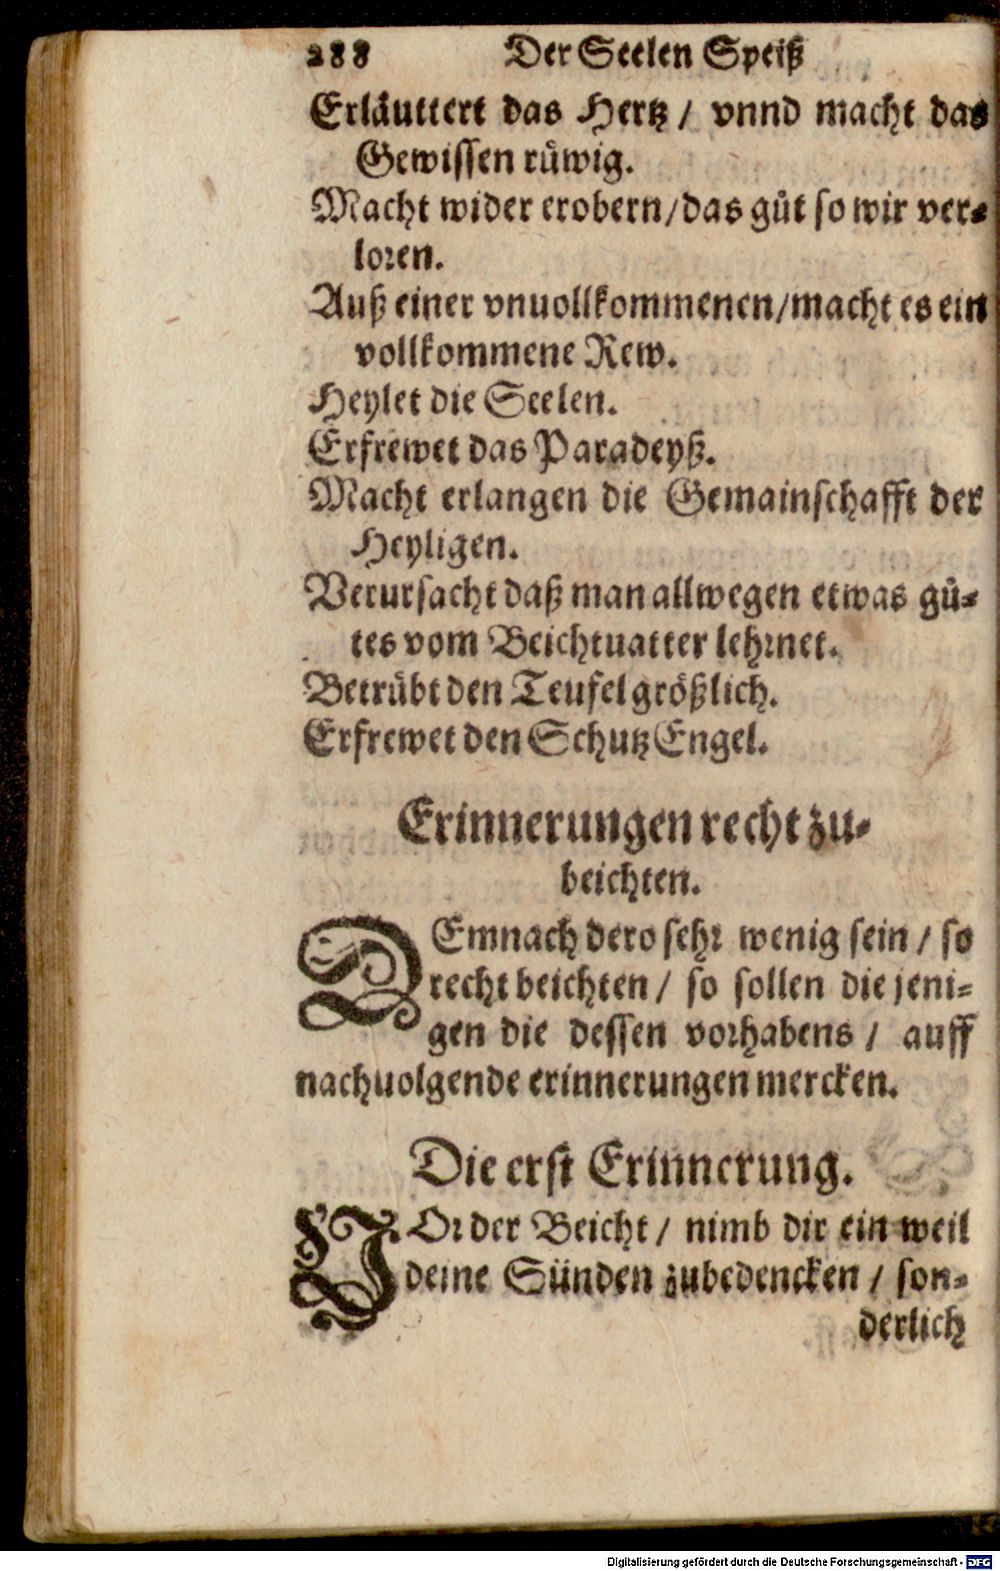 288 Der Seelen Speiß
Erläuttert das Hertz / vnnd macht das
Gewissen rüwig.
Macht wider erobern/das gůt so wir ver-
loren.
Auß einer vnuollkommenen/macht es ein
vollkommene Rew.
Heylet die Seelen.
Erfrewet das Paradeyß.
Macht erlangen die Gemainschafft der
Heyligen.
Verursacht daß man allwegen etwas gů-
tes vom Beichtuatter lehrnet.
Betrübt den Teufel größlich.
Erfrewet den Schutz Engel.
Erinnerungen recht zu-
beichten.
DEmnach dero sehr wenig sein / so
recht beichten / so sollen die jeni-
gen die dessen vorhabens / auff
nachuolgende erinnerungen mercken.
Die erst Erinnerung.
VOr der Beicht / nimb dir ein weil
deine Sünden zubedencken / son-
derlich
Digitalisierung gefördert durch die Deutsche Forschungsgemeinschaft - DFG